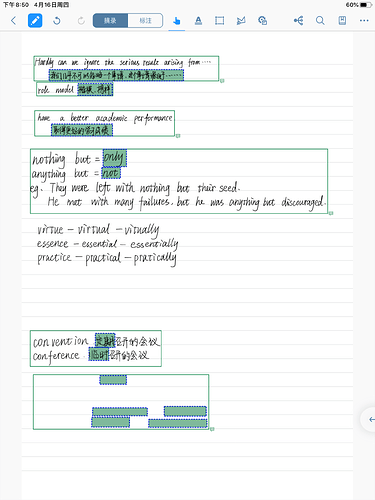 下午8:50 4月16日周四
60%
摘录 标注
Hardly can we ignore the serious results arising from ....
我们几乎不可以忽略一个事情，
role model 楷模，榜样
have a better academic performance
取得更好的学习成绩
nothing but = only
anything but = not
eg. They were left with nothing but their seed.
He met with many failures, but he was anything but discouraged.
virtue – virtual – vitually
essence – essential – essentially
practice – practical – pratically
convention 定期召开的会议
conference 临时召开的会议